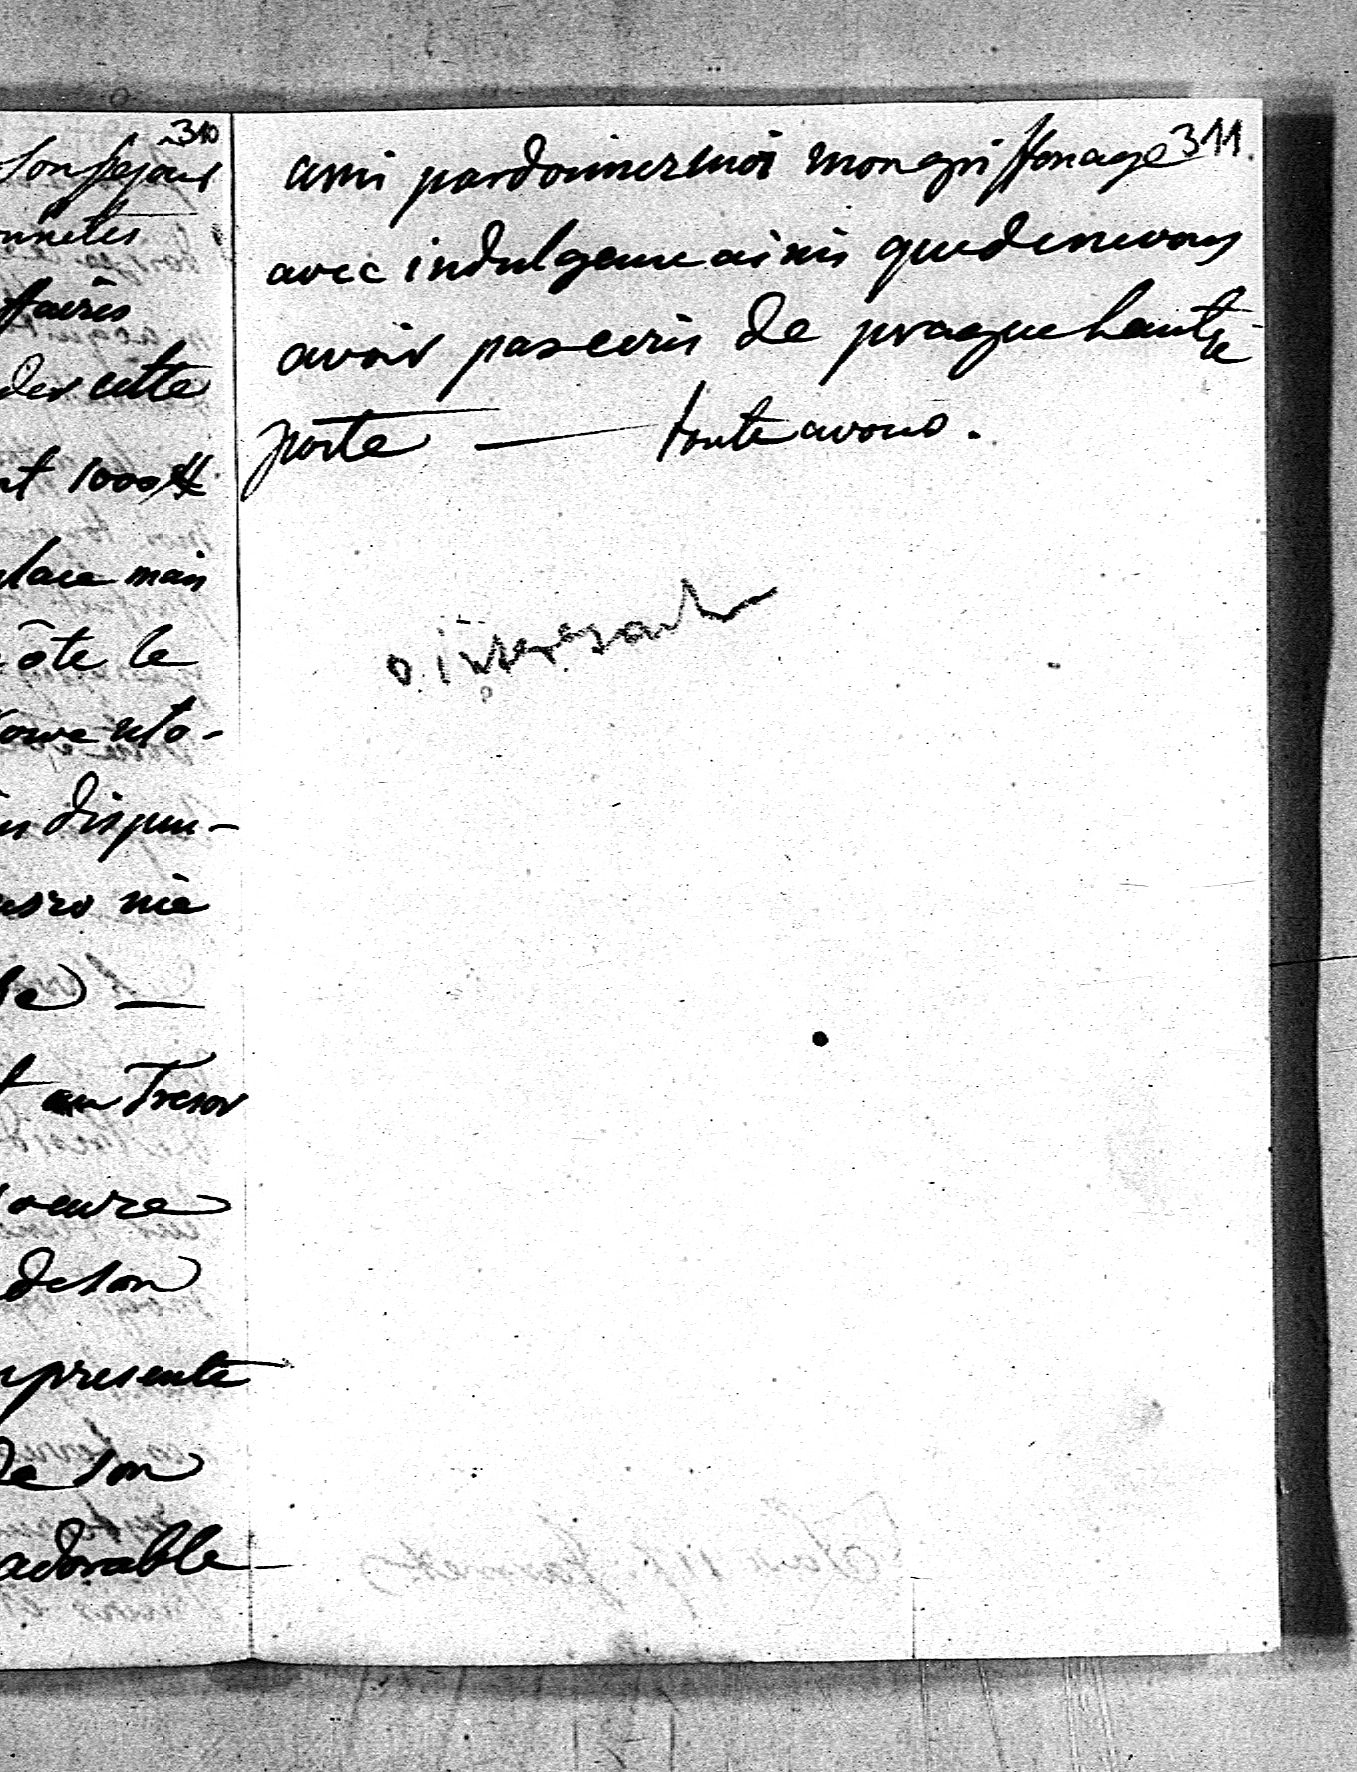 310
sonsejour
onnetes
ffaires
der cette
nt 1000
place mais
ôte le
in dispen-
nie
de —
t au Tresor
oeuvre
de son
represente
de son
adorable
311.
ami pardonnez moi mon griffonage
avec indulgence ainsi que de ne vous
avoir pas ecris de prague l'autre
poste — toute a vous.